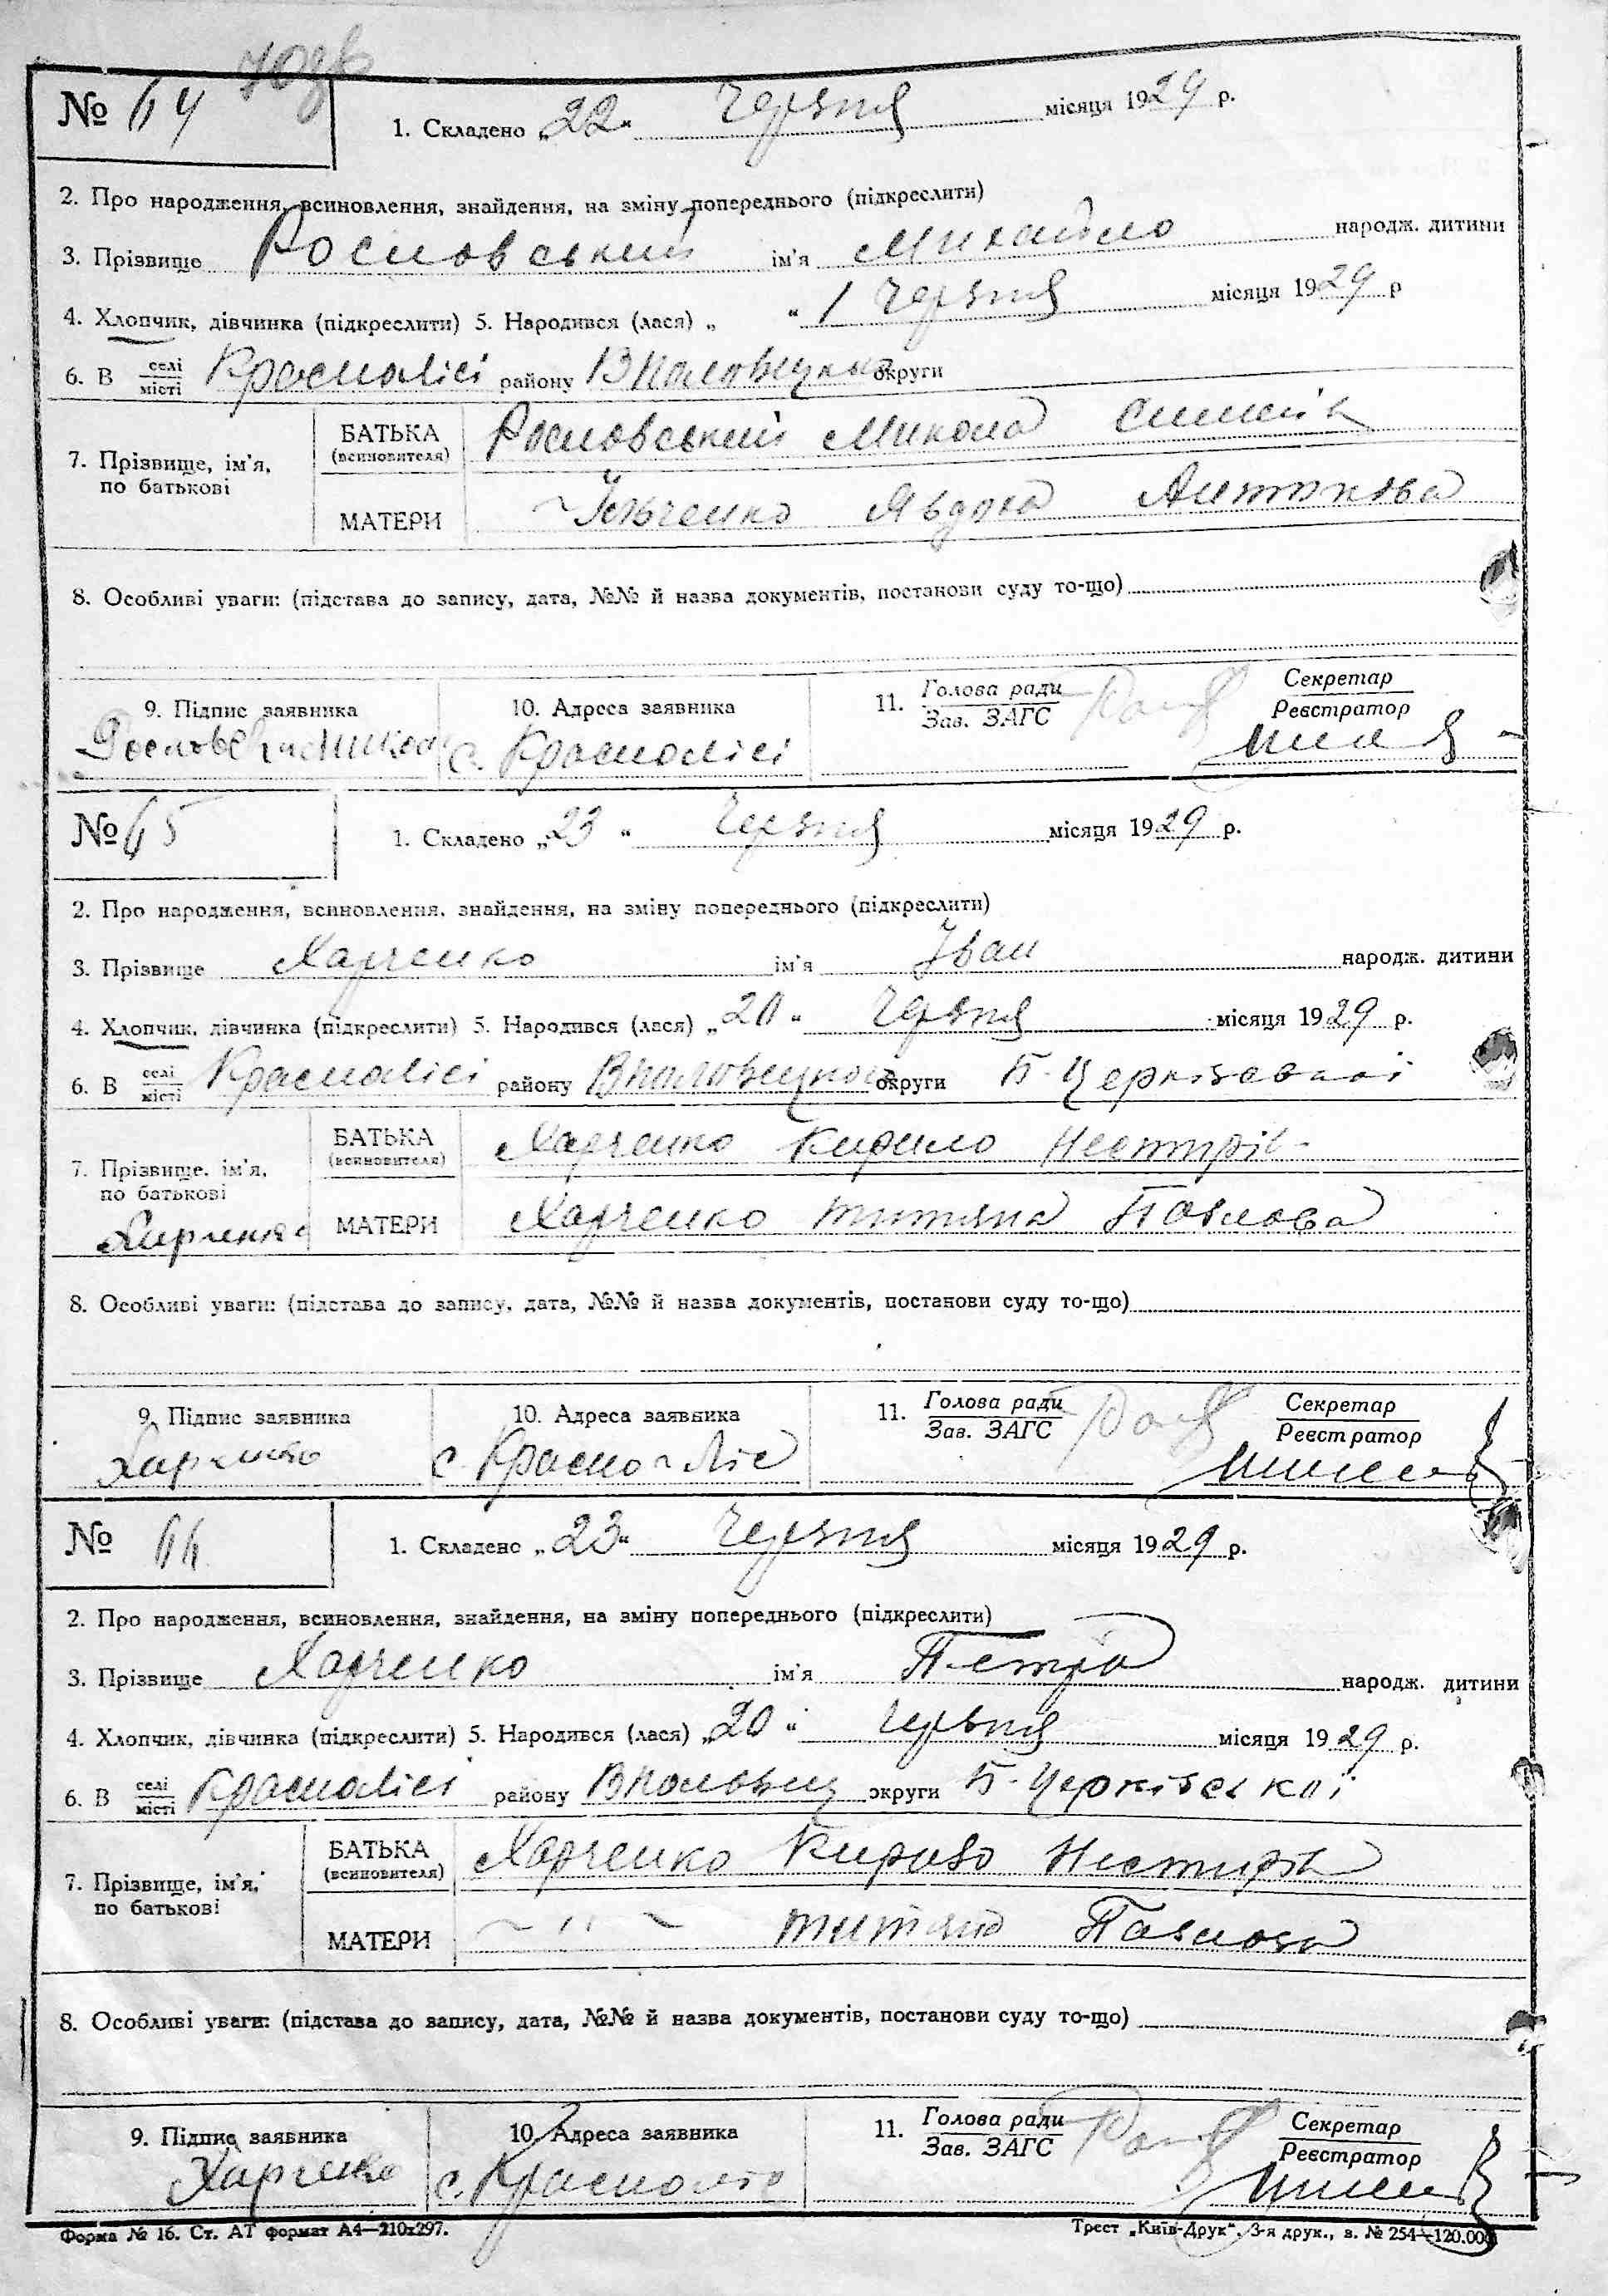 № 64
1. Складено „22“ Червня місяця 1929 р.
2. Про народження, всиновлення, знайдення, на зміну попереднього (підкреслити)
3. Прізвище Росновський ім'я Михайло народж. дитини
4. Хлопчик, дівчинка (підкреслити) 5. Народився (лася) „ “ 1 Червня місяця 1929 р
6. В селі місті Краснолісі району округи
7. Прізвище, ім'я, по батькові
БАТЬКА (всиновителя) Росновський Микола
МАТЕРИ Явдоха
8. Особливі уваги: (підстава до запису, дата, №№ й назва документів, постанови суду то-що)
9. Підпис заявника
10. Адреса заявника
с. Краснолісі
11. Голова ради Зав. ЗАГС
Секретар Реєстратор
№ 65
1. Складено „23“ Червня місяця 1929 р.
2. Про народження, всиновлення, знайдення, на зміну попереднього (підкреслити)
3. Прізвище Харченко ім'я Іван народж. дитини
4. Хлопчик, дівчинка (підкреслити) 5. Народився (лася) „20“ Червня місяця 1929 р.
6. В селі місті Краснолісі району округи Б-Церківської
7. Прізвище, ім'я, по батькові
БАТЬКА (всиновителя) Харченко Кирило Нестирів
Харченко
МАТЕРИ Харченко Титяна Павлова
8. Особливі уваги: (підстава до запису, дата, №№ й назва документів, постанови суду то-що)
9. Підпис заявника
Харченко
10. Адреса заявника
с. Красно-Ліс
11. Голова ради Зав. ЗАГС
Секретар Реєстратор
№ 66
1. Складено „23“ Червня місяця 1929 р.
2. Про народження, всиновлення, знайдення, на зміну попереднього (підкреслити)
3. Прізвище Харченко ім'я Петро народж. дитини
4. Хлопчик, дівчинка (підкреслити) 5. Народився (лася) „20“ Червня місяця 1929 р.
6. В селі місті Краснолісі району округи Б-Церківської
7. Прізвище, ім'я, по батькові
БАТЬКА (всиновителя) Харченко Кирило Нестирів
МАТЕРИ ~ " ~ Титяна Павлова
8. Особливі уваги: (підстава до запису, дата, №№ й назва документів, постанови суду то-що)
9. Підпис заявника
Харченко
10. Адреса заявника
с. Красноліс
11. Голова ради Зав. ЗАГС
Секретар Реєстратор
Форма № 16. Ст. АТ формат А4—210х297.
Трест „Київ-Друк“, 3-я друк., з. № 254—120.000